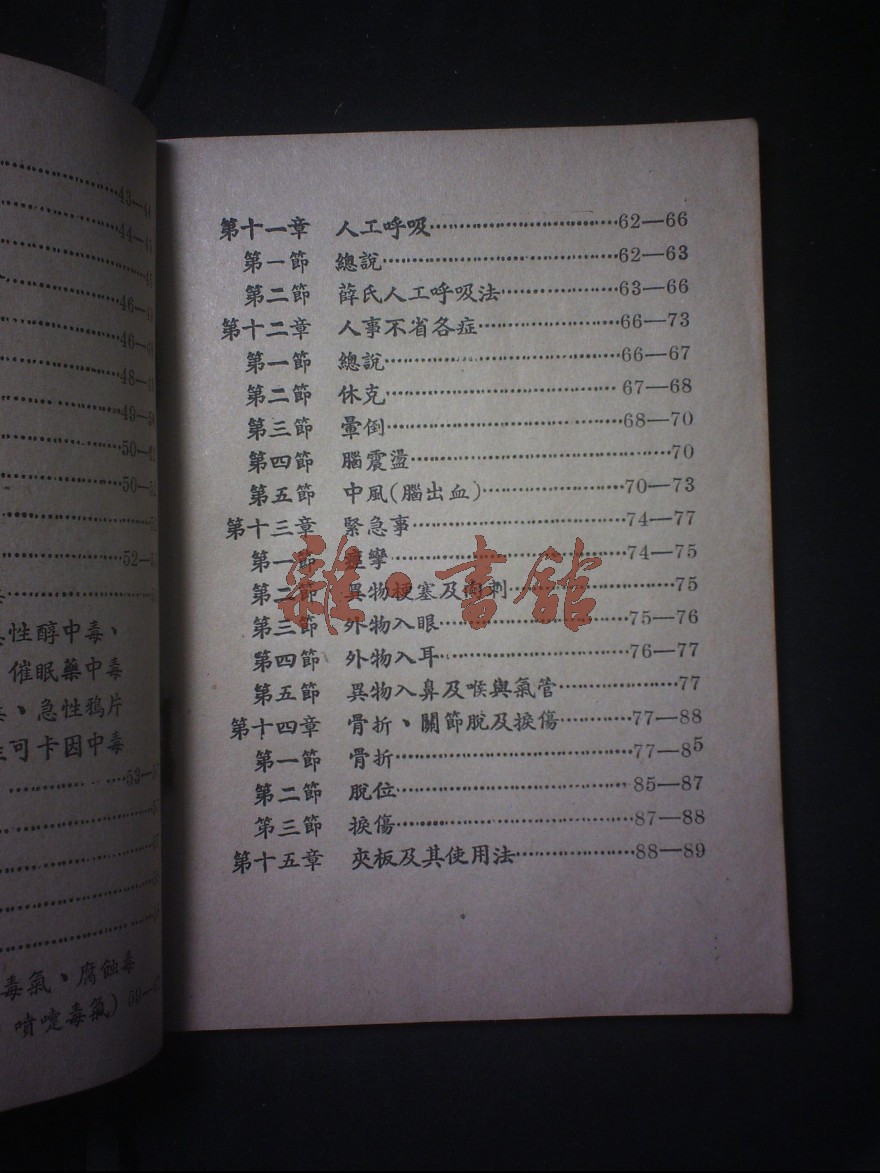 43—44
44—4
45
46—4
46—4
48—4
49—50
50—
50—5
52—5
性醇中毒、
催眠藥中毒
、急性鴉片
可卡因中毒
53—5
毒氣、腐蝕毒
噴嚏毒氣) 59—6
第十一章 人工呼吸 62—66
第一節 總說 62—63
第二節 薛氏人工呼吸法 63—66
第十二章 人事不省各症 66—73
第一節 總說 66—67
第二節 休克 67—68
第三節 暈倒 68—70
第四節 腦震盪 70
第五節 中風(腦出血) 70—73
第十三章 緊急事 74—77
第一節 痙攣 74—75
第二節 異物梗塞及肉刺 75
第三節 外物入眼 75—76
第四節 外物入耳 76—77
第五節 異物入鼻及喉與氣管 77
第十四章 骨折、關節脫及捩傷 77—88
第一節 骨折 77—85
第二節 脫位 85—87
第三節 捩傷 87—88
第十五章 夾板及其使用法 88—89
雜·書館